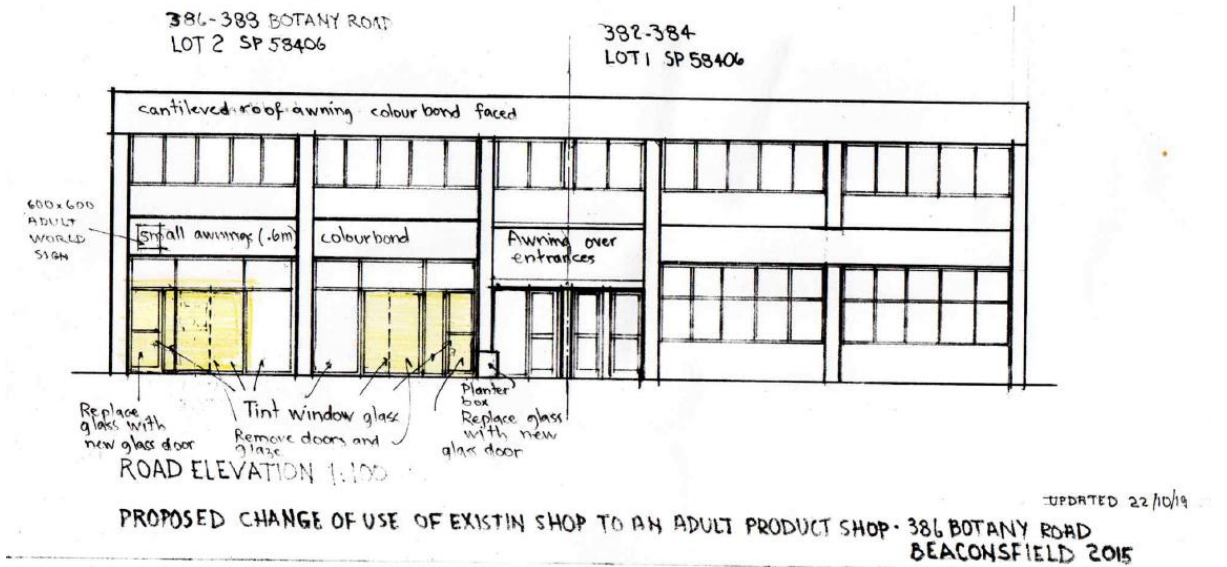 386-388 BOTANY ROAD
LOT 2 SP 58406
382-384
LOT 1 SP 58406
cantileved roof awning colourbond faced
600x600
ADULT
WORLD
SIGN
small awnings (.6m)
colourbond
Awning over
entrances
Replace
glass with
new glass door
Tint window glass
Remove doors and
glaze
Planter
box
Replace glass
with new
glass door
ROAD ELEVATION 1:100
UPDATED 22/10/19
PROPOSED CHANGE OF USE OF EXISTIN SHOP TO AN ADULT PRODUCT SHOP · 386 BOTANY ROAD
BEACONSFIELD 2015